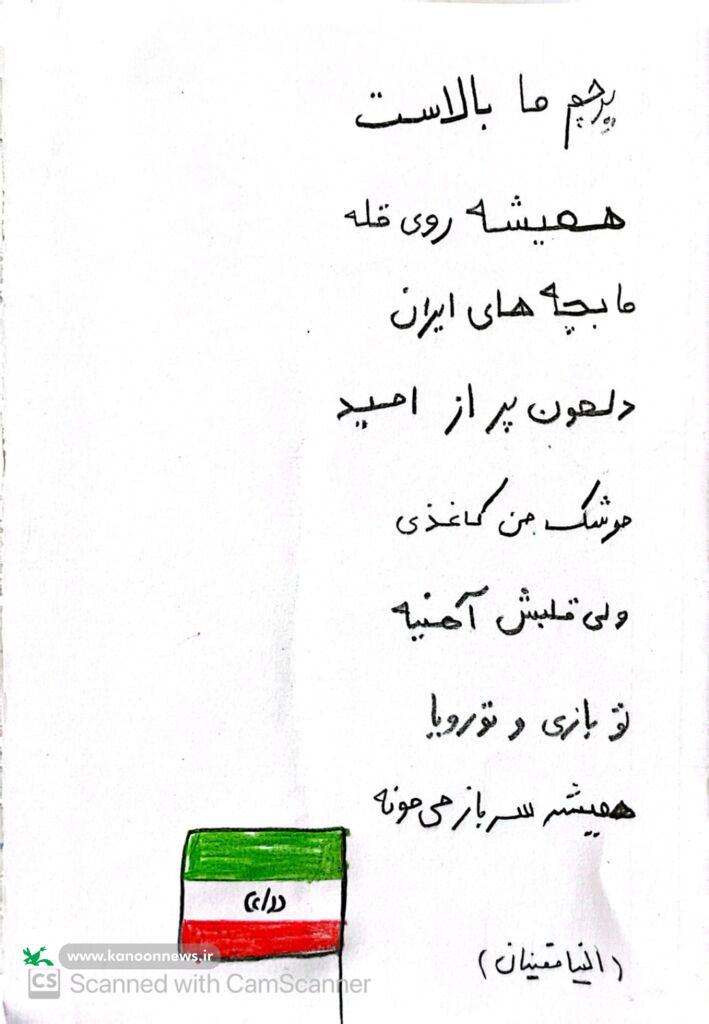 پرچم ما بالاست
همیشه روی قله
ما بچه های ایران
دلهون پر از امید
موشک من کاغذی
ولی قلبش آهنیه
تو بازی و تو رویا
همیشه سرباز می مونه
(النیا مقینان)
www.kanoonnews.ir
CS Scanned with CamScanner